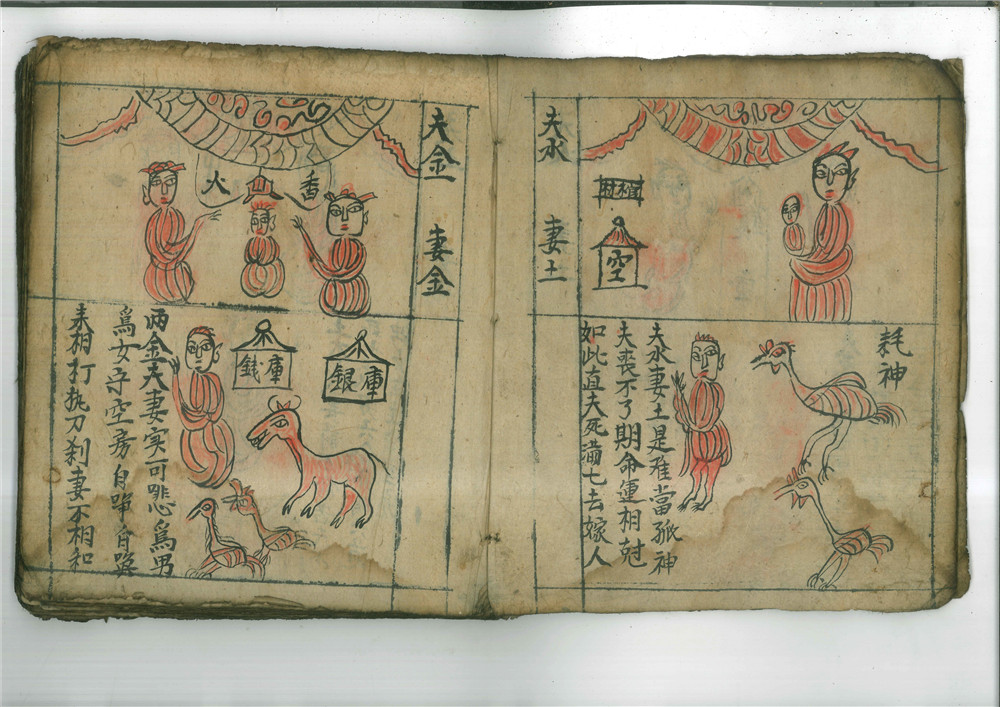 耗神
空
夫水 妻土
夫水妻土是難當孤神
夫丧不了期命運相尅
如此直夫死满七去嫁人
夫金 妻金
香火
銀庫
銭庫
両金夫妻实可悲為男
為女守空房自争自
耒相打执刀刹妻不相和